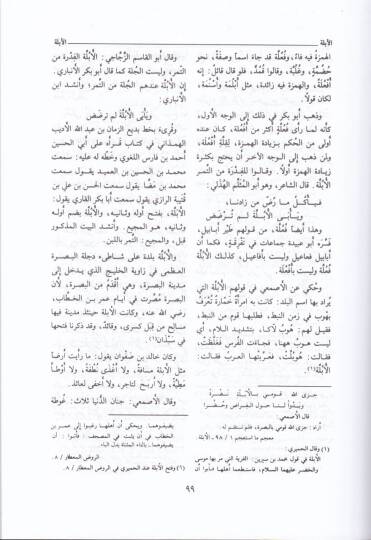 الأبلة
الأبلة
الهمزةُ فيه فاءً، وفُعُلّة قد جاء اسماً وصفةً، نحو
خُضُمّةٍ، وغُلُبّة، وقالوا قُمُدّ، فلو قال قائل: إنه
أُفْعُلَة، والهمزة فيه زائدة، مثل أُبْلُمة وأُسْنُمة،
لكان قولاً.
وذهب أبو بكر في ذلك إلى الوجه الأول،
كأنه لما رأى فُعُلّة أكثر من أُفْعُلة، كان عنده
أولى من الحكم بزيادة الهمزة، لِقلّة أُفْعُلة،
ولمن ذهب إلى الوجه الآخر أن يحتج بكثرة
زيادة الهمزة أولاً. وقالوا للفِدْرة من التّمر
الأُبُلّة. قال الشاعر، وهو أبو المُثَلَّم الهُذَلي:
فيأكُلُ ما رُضَّ من زادنا،
ويأبى الأُبُلّةَ لم تُرْضَضِ
وهذا أيضاً فُعُلّة، من قولهم طَيْر أبابيل،
فسّره أبو عبيدة جماعات في تَفْرِقة، فكما أن
أبابيل فعاعيل وليست بأفاعيل، كذلك الأُبُلّة
فُعُلّة وليست بأُفْعُلة.
وحُكي عن الأصمعي في قولهم الأُبُلّة التي
يُراد بها اسم البلد: كانت به امرأة خَمّارة تُعْرَفُ
بهُوب في زمن النبط، فطلبها قوم من النبط،
فقيل لهم: هُوبُ لاكا، بتشديد اللام، أي
ليست هوب هنا، فجاءت الفُرْس فغلّطت،
فقالت: هُوبُلّت، فعرّبتها العرب فقالت:
الأُبُلّة(١).
جزى الله قومي بالأبلة نضرة
وبدوا لنا حول الفراض وحضرا
قال الأصمعي:
أراد: جزى الله قومي بالبصرة، فلم تستقم له.
معجم ما استعجم ١ / ٩٨ - الأبلة.
(١) وقال الحميري:
الأبلة في قول محمد بن سيرين: القرية التي مر بها موسى
والخضر عليهما السلام، فاستطعما أهلها فأبوا أن
وقال أبو القاسم الزَّجّاجي: الأُبُلّة الفِدْرة من
التّمر، وليست الجُلّة كما قال أبو بكر الأنباري.
إن الأُبُلّة عندهم الجُلّة من التّمر؛ وأنشد ابن
الأنباري:
ويأبى الأُبُلّة لم تُرضَض
وقُرىء بخط بديع الزمان بن عبد الله الأديب
الهمذاني في كتاب قرأه على أبي الحسين
أحمد بن فارس اللغوي وخَطّه له عليه: سمعت
محمد بن الحسين بن العميد يقول سمعت
محمد بن مَضَا يقول سمعت الحسن بن علي بن
قُتيبة الرازي يقول سمعت أبا بكر القاري يقول:
الأَبُلّة، بفتح أوله وثانيه، والأُبُلّة بضم أوله
وثانيه، هو المجيع. وأنشد البيت المذكور
قبل، والمجيع: التّمر باللبن.
والأُبُلّة بلدة على شاطىء دجلة البصرة
العظمى في زاوية الخليج الذي يدخل إلى
مدينة البصرة، وهي أقدم من البصرة، لأن
البصرة مُصّرت في أيام عمر بن الخطاب،
رضي الله عنه، وكانت الأُبُلّة حينئذ مدينة فيها
مسالح من قِبَل كسرى، وقائد، وقد ذكرنا فتحها
في سَبَذان(٢).
وكان خالد بن صفوان يقول: ما رأيت أرضاً
مثل الأُبُلّة مسافةً، ولا أغذى نُطْفةً، ولا أوْطأ
مَطِيّةً، ولا أرْبح لتاجر، ولا أخفى لعائذ.
وقال الأصمعي: جنان الدُّنيا ثلاث: غُوطة
يضيفوهما. ويحكى أن أهلها رغبوا إلى عمر بن
الخطاب في أن يثبت في المصحف: فأتوا: أن
يضيفوهما، بالتاء المثناة بدل الباء.
الروض المعطار / ٨.
(١) وفتح الأبلة عند الحميري في الروض المعطار / ٨.
٩٩